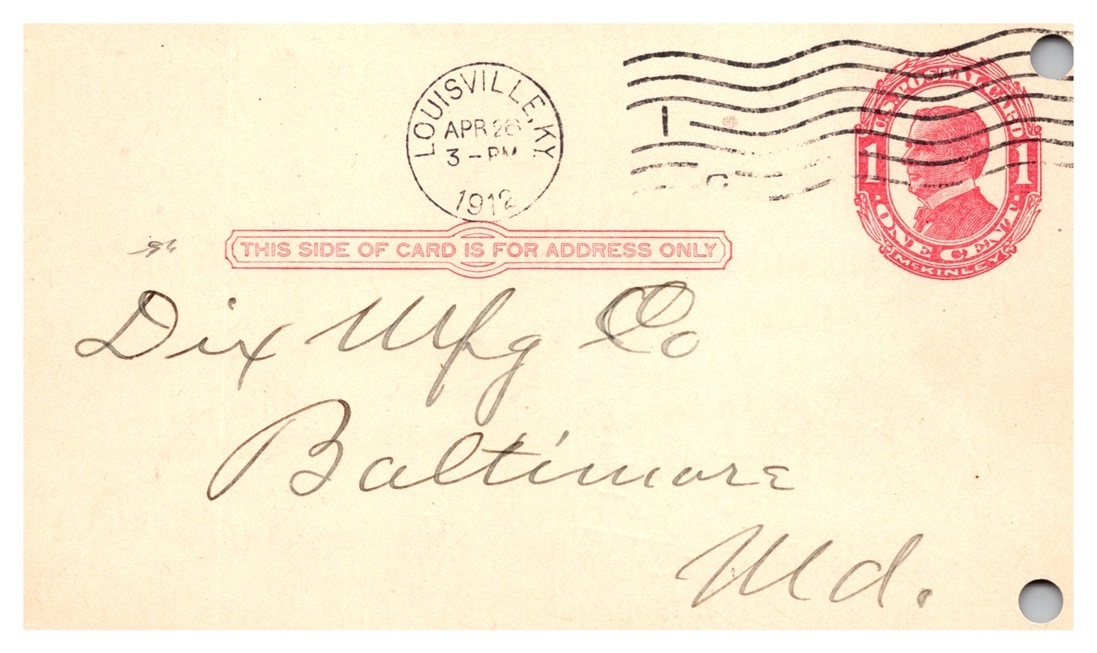 LOUISVILLE, KY
APR 26
3 - PM
1912
1
U.S. POSTAL CARD
1 1
ONE CENT
McKINLEY
THIS SIDE OF CARD IS FOR ADDRESS ONLY
Dix Mfg Co
Baltimore
Md.